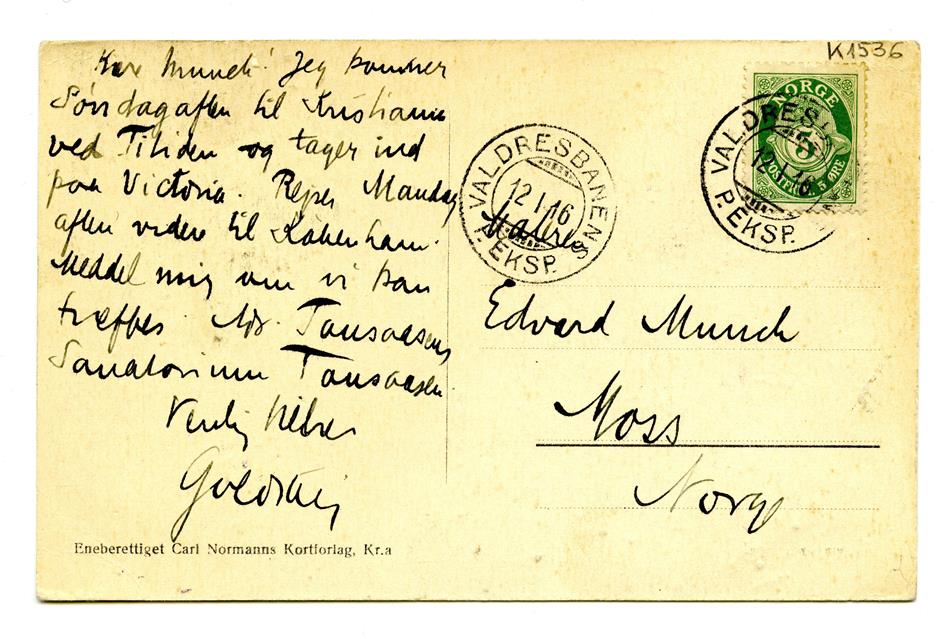 K1536
Kære Munch! Jeg kommer
Søndag aften til Kristiania
ved Titiden og tager ind
paa Victoria. Rejser Mandag
aften videre til København.
Meddel mig om vi kan
træffes. Adr. Tonsaasens
Sanatorium Tonsaasen
Venlig Hilsen
Goldstein
Eneberettiget Carl Normanns Kortforlag, Kr.a
VALDRESBANENS
12 I 16
P.EKSP.
NORGE
5
POSTFRIM. 5 ØRE
VALDRES
12 I 16
P.EKSP.
Maleren
Edvard Munch
Moss
Norge